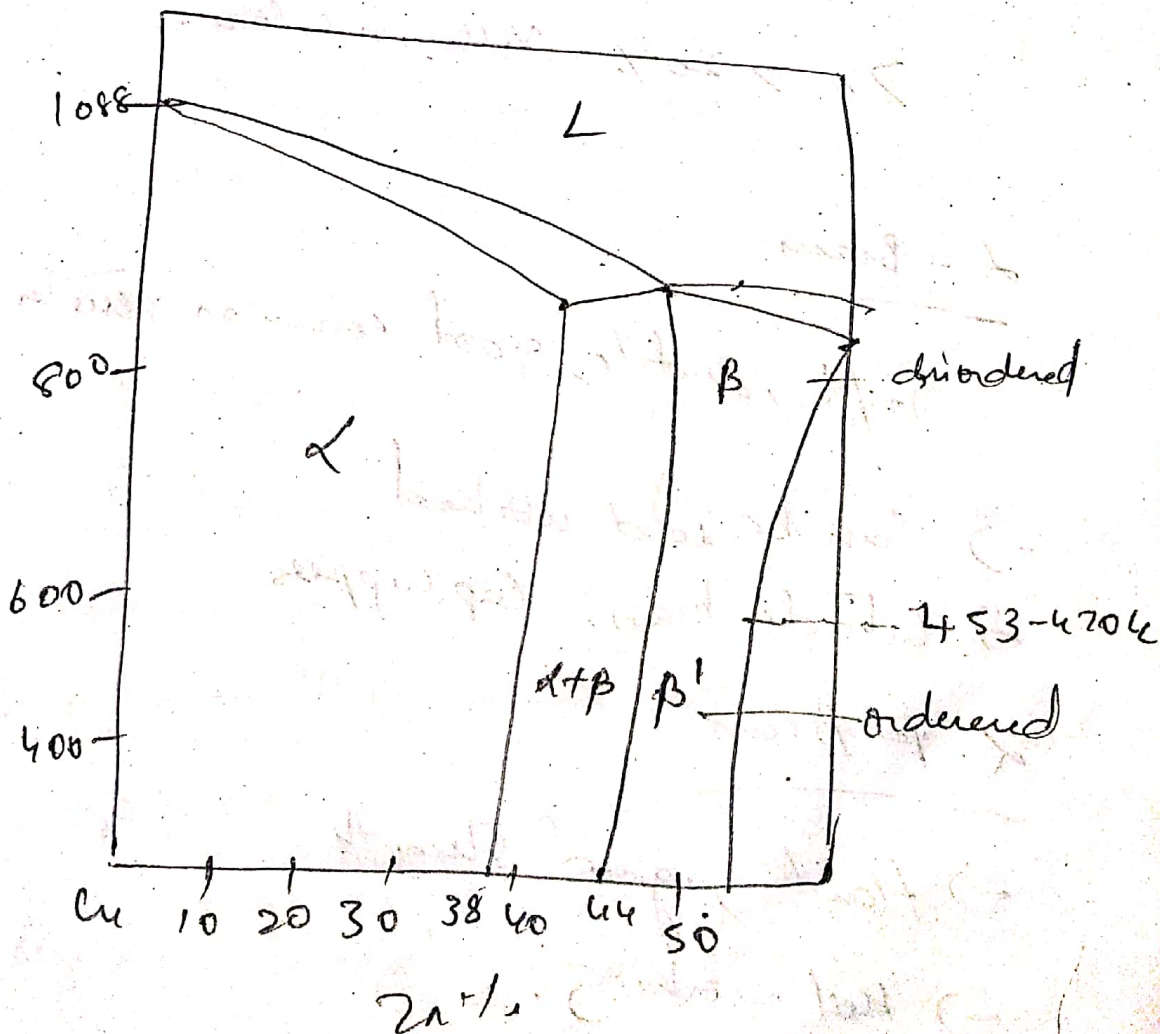 1088
L
800
β
disordered
α
600
453-470k
α+β
β'
orderered
400
Cu 10 20 30 38 40 44 50
Zn %